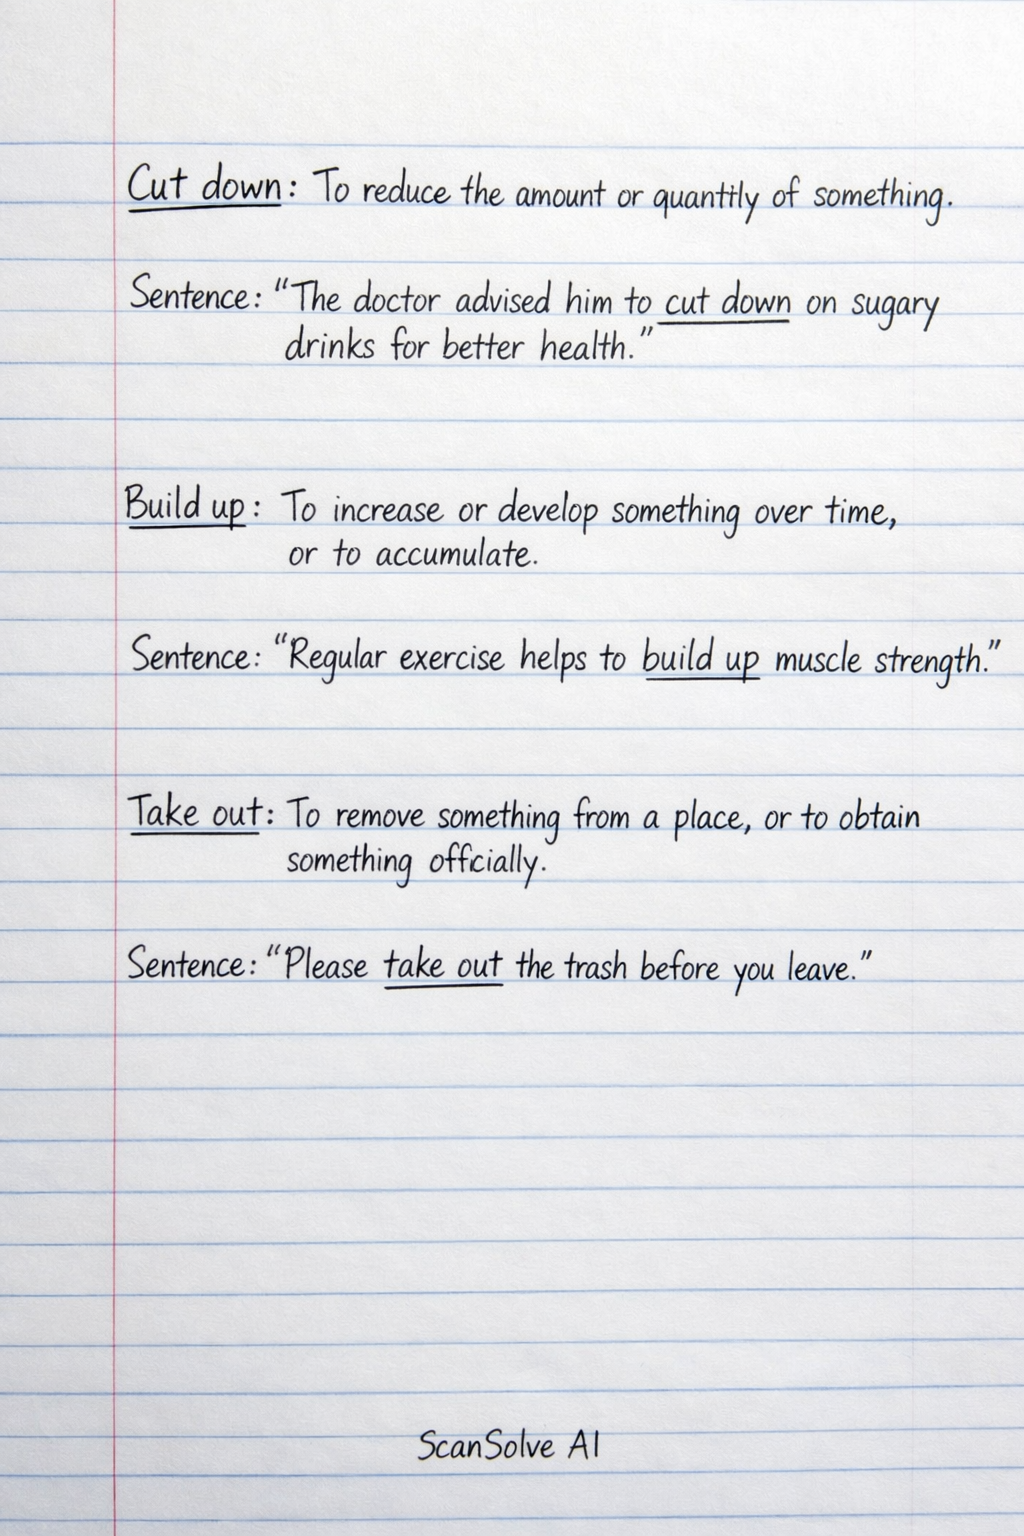 Cut down: To reduce the amount or quanttly of something.
Sentence: "The doctor advised him to cut down on sugary
drinks for better health."
Build up: To increase or develop something over time,
or to accumulate.
Sentence: "Regular exercise helps to build up muscle strength."
Take out: To remove something from a place, or to obtain
something officially.
Sentence: "Please take out the trash before you leave."
ScanSolve AI